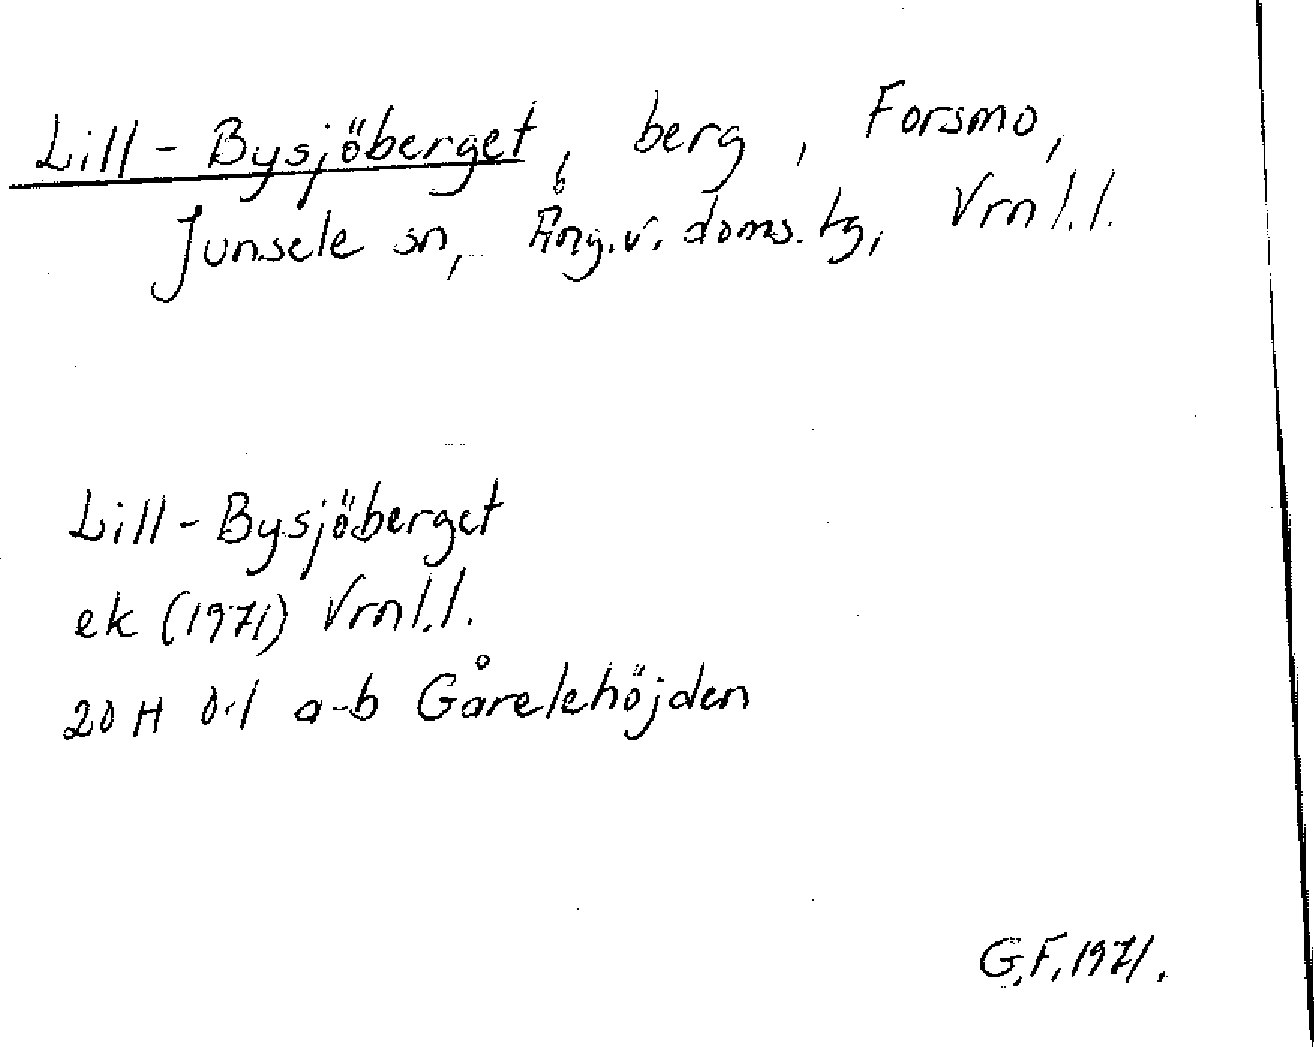 Lill-Bysjöberget, berg, Forsmo,
Junsele sn, Ång.v. doms.tg, Vrnl.l.
Lill-Bysjöberget
ek (1971) Vrnl.l.
20 H 0-1 a-b Gårelehöjden
G.F. 1971.